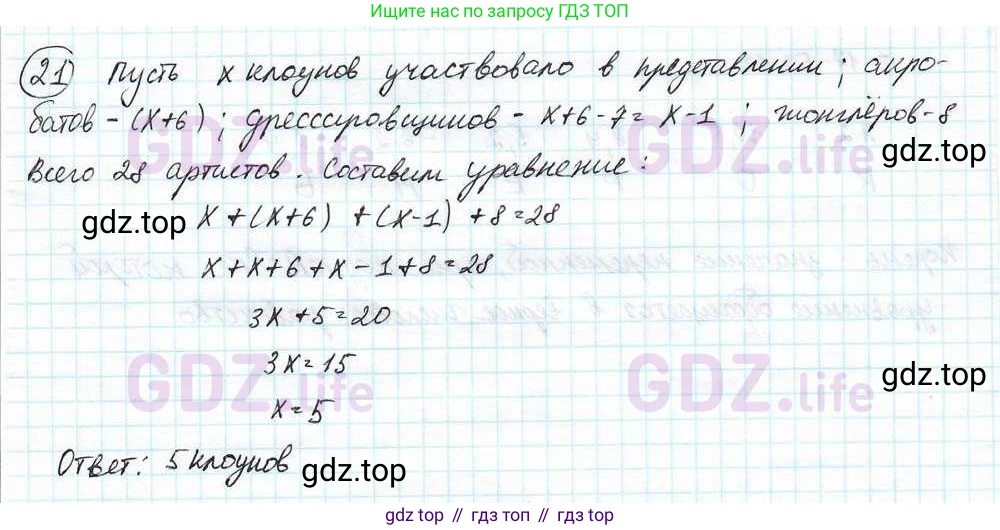 Ищите нас по запросу ГДЗ ТОП
21) Пусть x клоунов участвовало в представлении; акро-
батов - (x+6); дрессировщиков - x+6-7= x-1; жонглёров-8
Всего 28 артистов. Составим уравнение:
x+(x+6) +(x-1) +8=28
x+x+6+x-1+8=28
3x+5=20
3x=15
x=5
Ответ: 5 клоунов
GDZ.life
GDZ.life
GDZ.life
GDZ.life
gdz.top
gdz.top
gdz.top
gdz.top
gdz.top // gdz.top // gdz.top